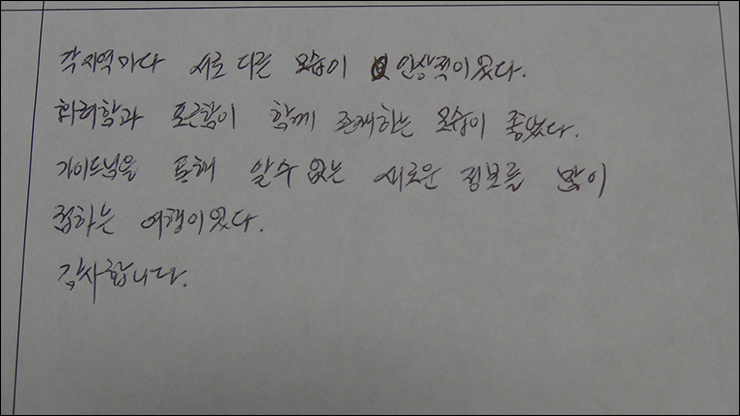 각 지역마다 서로 다른 모습이 인상적이었다.
화려함과 포근함이 함께 존재하는 모습이 좋았다.
가이드님을 통해 알수 없는 새로운 정보를 많이
접하는 여행이었다.
감사합니다.